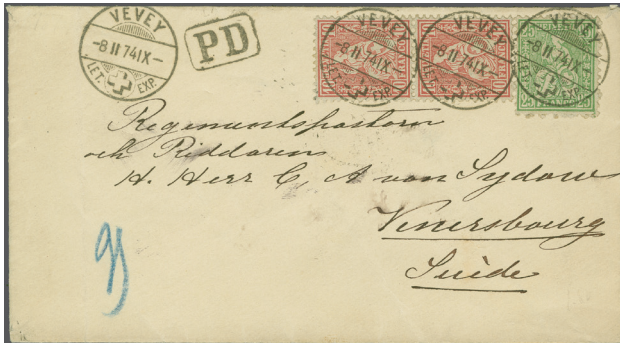 VEVEY
-8 II 74 IX-
LET. EXP.
PD
VEVEY
-8 II 74 IX-
LET. EXP.
VEVEY
-8 II 74 IX-
LET. EXP.
VEVEY
-8 II 74 IX-
LET. EXP.
Regementspastorn
och Riddaren
H. Herr C, A von Sydow
Venersbourg
Suède